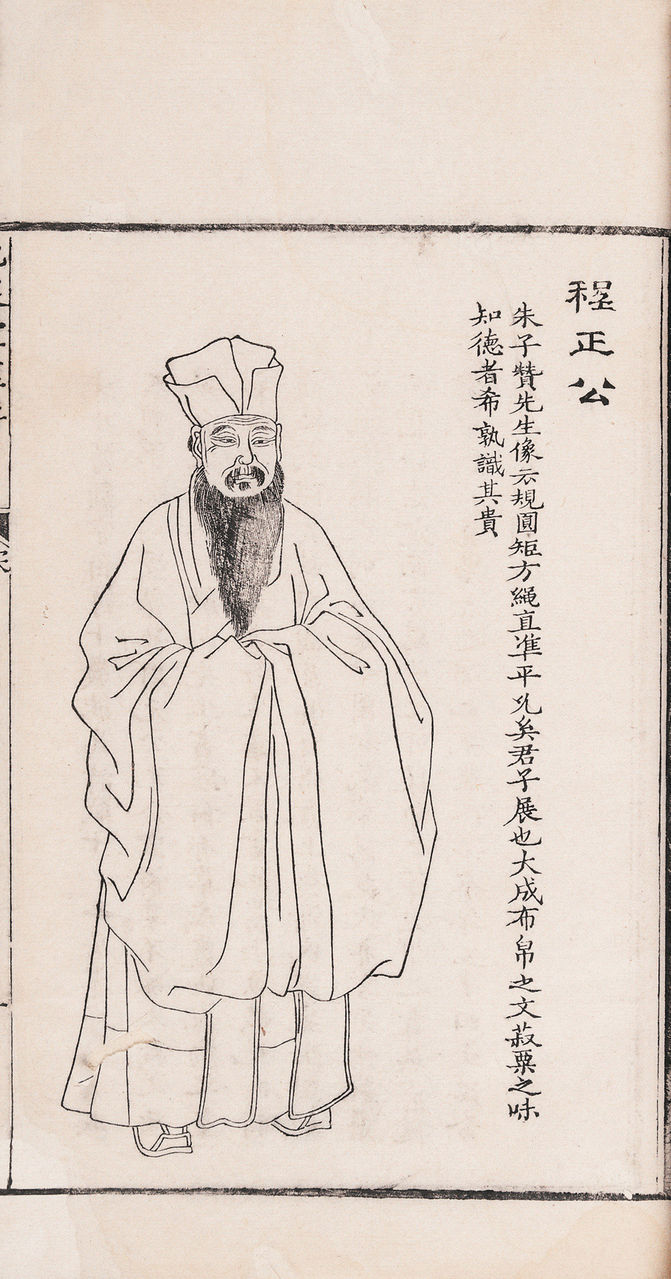 程正公
朱子贊先生像云規圓矩方繩直準平允矣君子展也大成布帛之文菽粟之味
知德者希孰識其貴